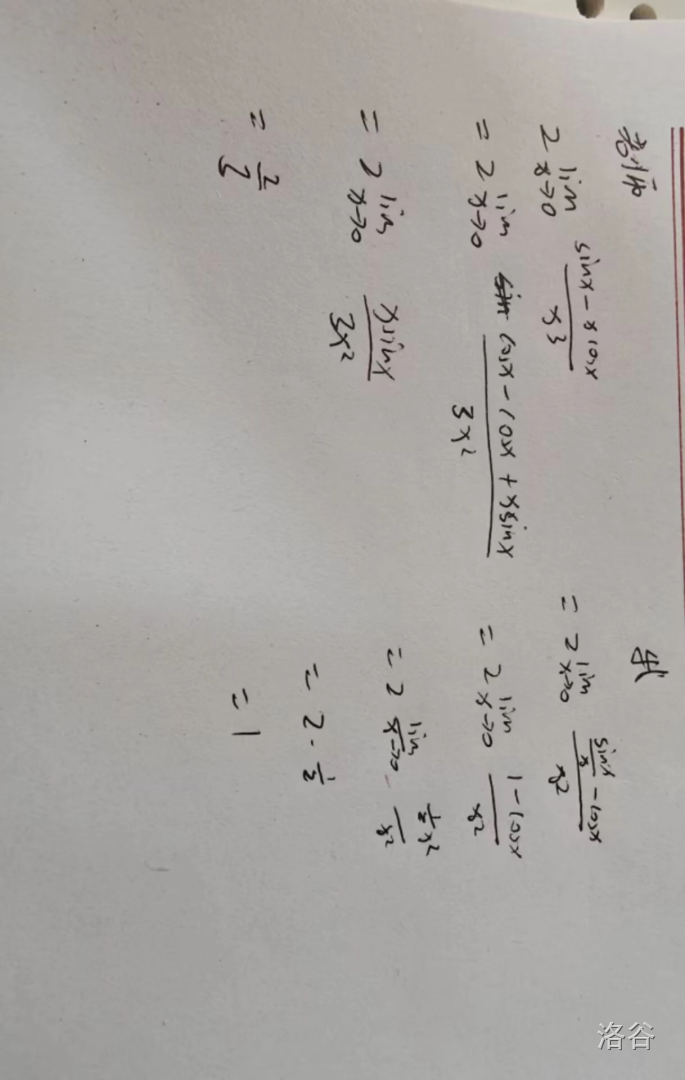 老师
2 lim x→0 (sinx - xcosx)/x³
= 2 lim x→0 (cosx - cosx + xsinx)/3x²
= 2 lim x→0 xsinx/3x²
= 2/3
我
= 2 lim x→0 (sinx/x - cosx)/x²
= 2 lim x→0 (1 - cosx)/x²
= 2 lim x→0 (½x²)/x²
= 2 · ½
= 1
洛谷